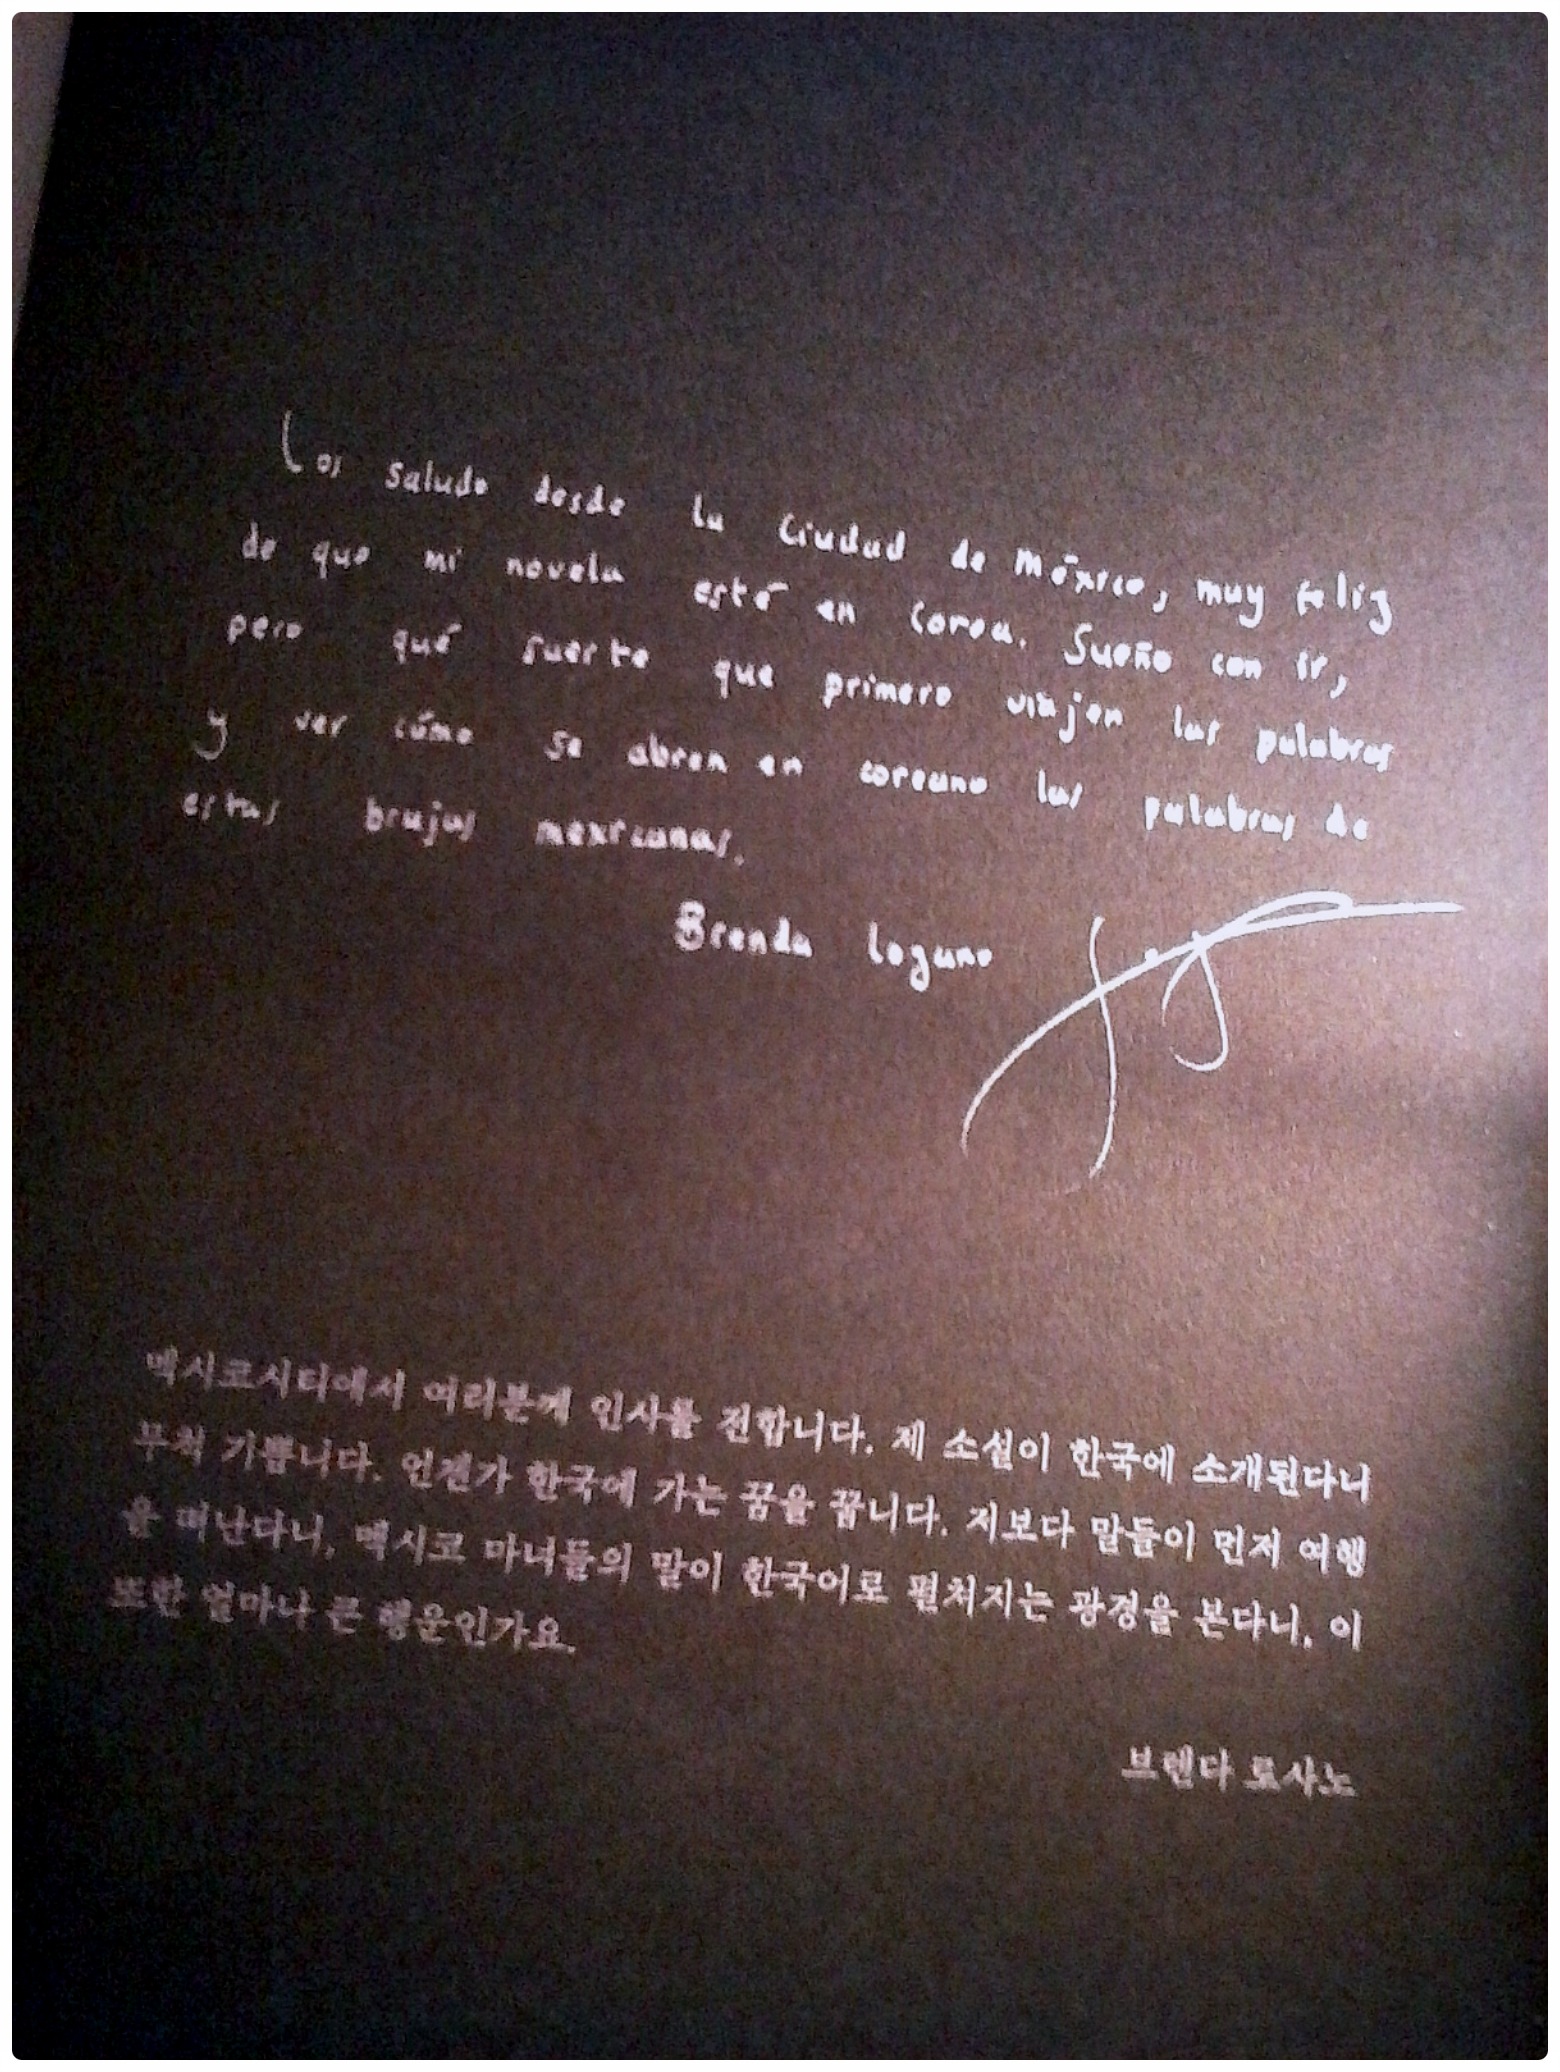 Los saludo desde la Ciudad de México, muy feliz
de que mi novela esté en Corea. Sueño con ir,
pero qué suerte que primero viajen las palabras
y ver cómo se abren en coreano las palabras de
estas brujas mexicanas.
Brenda Lozano
멕시코시티에서 여러분께 인사를 전합니다. 제 소설이 한국에 소개된다니
무척 기쁩니다. 언젠가 한국에 가는 꿈을 꿉니다. 저보다 말들이 먼저 여행
을 떠난다니, 멕시코 마녀들의 말이 한국어로 펼쳐지는 광경을 본다니, 이
또한 얼마나 큰 행운인가요.
브렌다 로사노